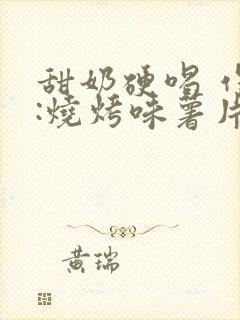 甜奶硬唱
:燒烤味薯片
黄瑞